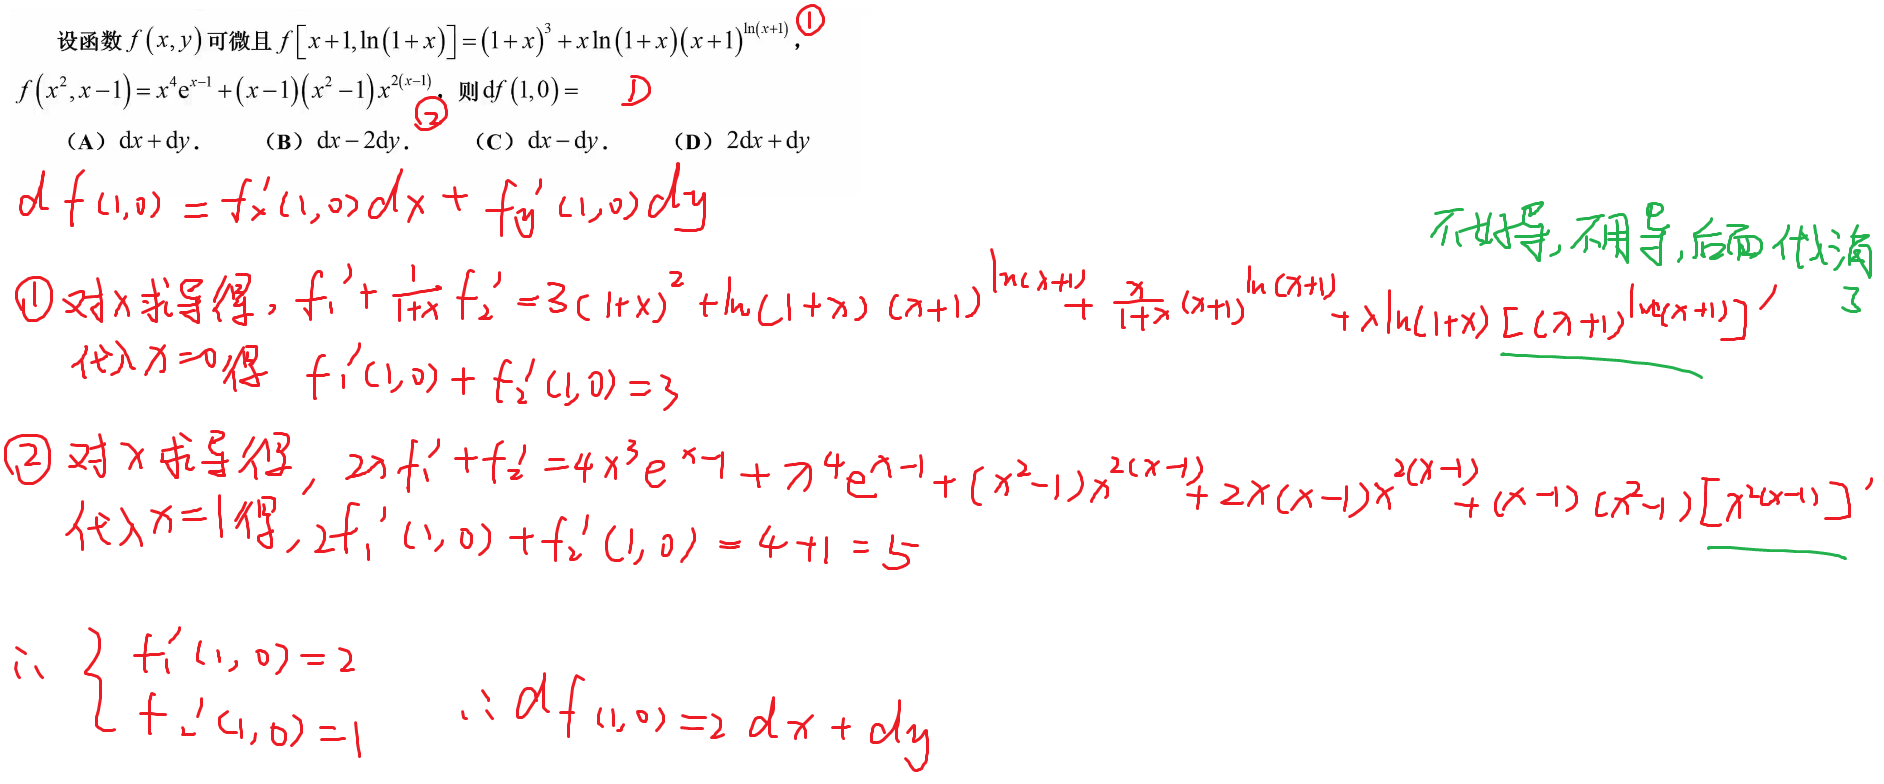 设函数 f(x,y) 可微且 f[x+1,ln(1+x)]=(1+x)³+xln(1+x)(x+1)^{ln(x+1)}, ①
f(x²,x−1)=x⁴e^{x−1}+(x−1)(x²−1)x^{2(x−1)}, ② 则 df(1,0)= D
(A) dx+dy. (B) dx−2dy. (C) dx−dy. (D) 2dx+dy
df(1,0) = fx′(1,0)dx + fy′(1,0)dy
不好导,不用导,后面代入消了
① 对x求导得, f₁′ + \frac{1}{1+x} f₂′ = 3(1+x)² + ln(1+x)(x+1)^{ln(x+1)} + \frac{x}{1+x}(x+1)^{ln(x+1)} + xln(1+x)[(x+1)^{ln(x+1)}]′
代入x=0得 f₁′(1,0) + f₂′(1,0) = 3
② 对x求导得, 2xf₁′ + f₂′ = 4x³e^{x−1} + x⁴e^{x−1} + (x²−1)x^{2(x−1)} + 2x(x−1)x^{2(x−1)} + (x−1)(x²−1)[x^{2(x−1)}]′
代入x=1得, 2f₁′(1,0) + f₂′(1,0) = 4+1 = 5
∴ { f₁′(1,0) = 2
f₂′(1,0) = 1 ∴ df(1,0) = 2dx + dy